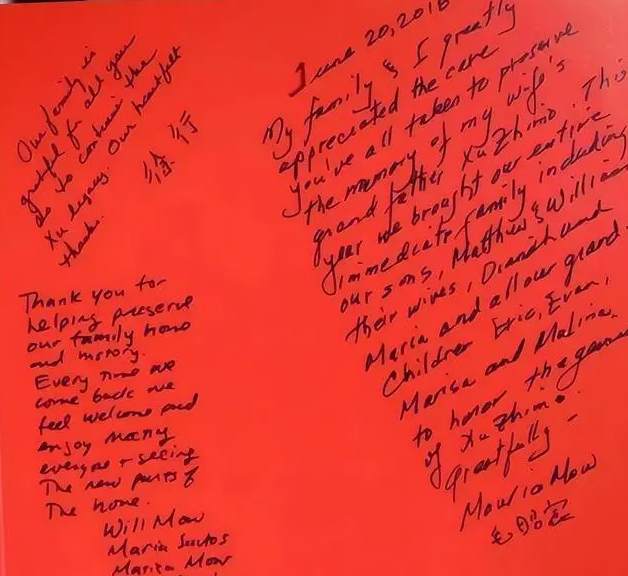 Our family is
grateful for all you
do to continue the
Xu legacy. Our heartfelt
thanks.
Thank you for
helping preserve
our family home
and history.
Every time we
come back we
feel welcome and
enjoy meeting
everyone + seeing
The new parts of
The home.
Will Mow
Maria Santos
Marisa Mow
June 20, 2018
My family & I greatly
appreciated the care
you've all taken to preserve
the memory of my wife's
grand father Xu Zhimo. This
year we brought our entire
immediate family including
our sons, Matthew & William
their wives, Dianah and
Maria and all our grand-
Children Eric, Evan,
Marisa and Malina.
to honor the genius
of Xu Zhimo.
Greatfully -
Mauria Mow